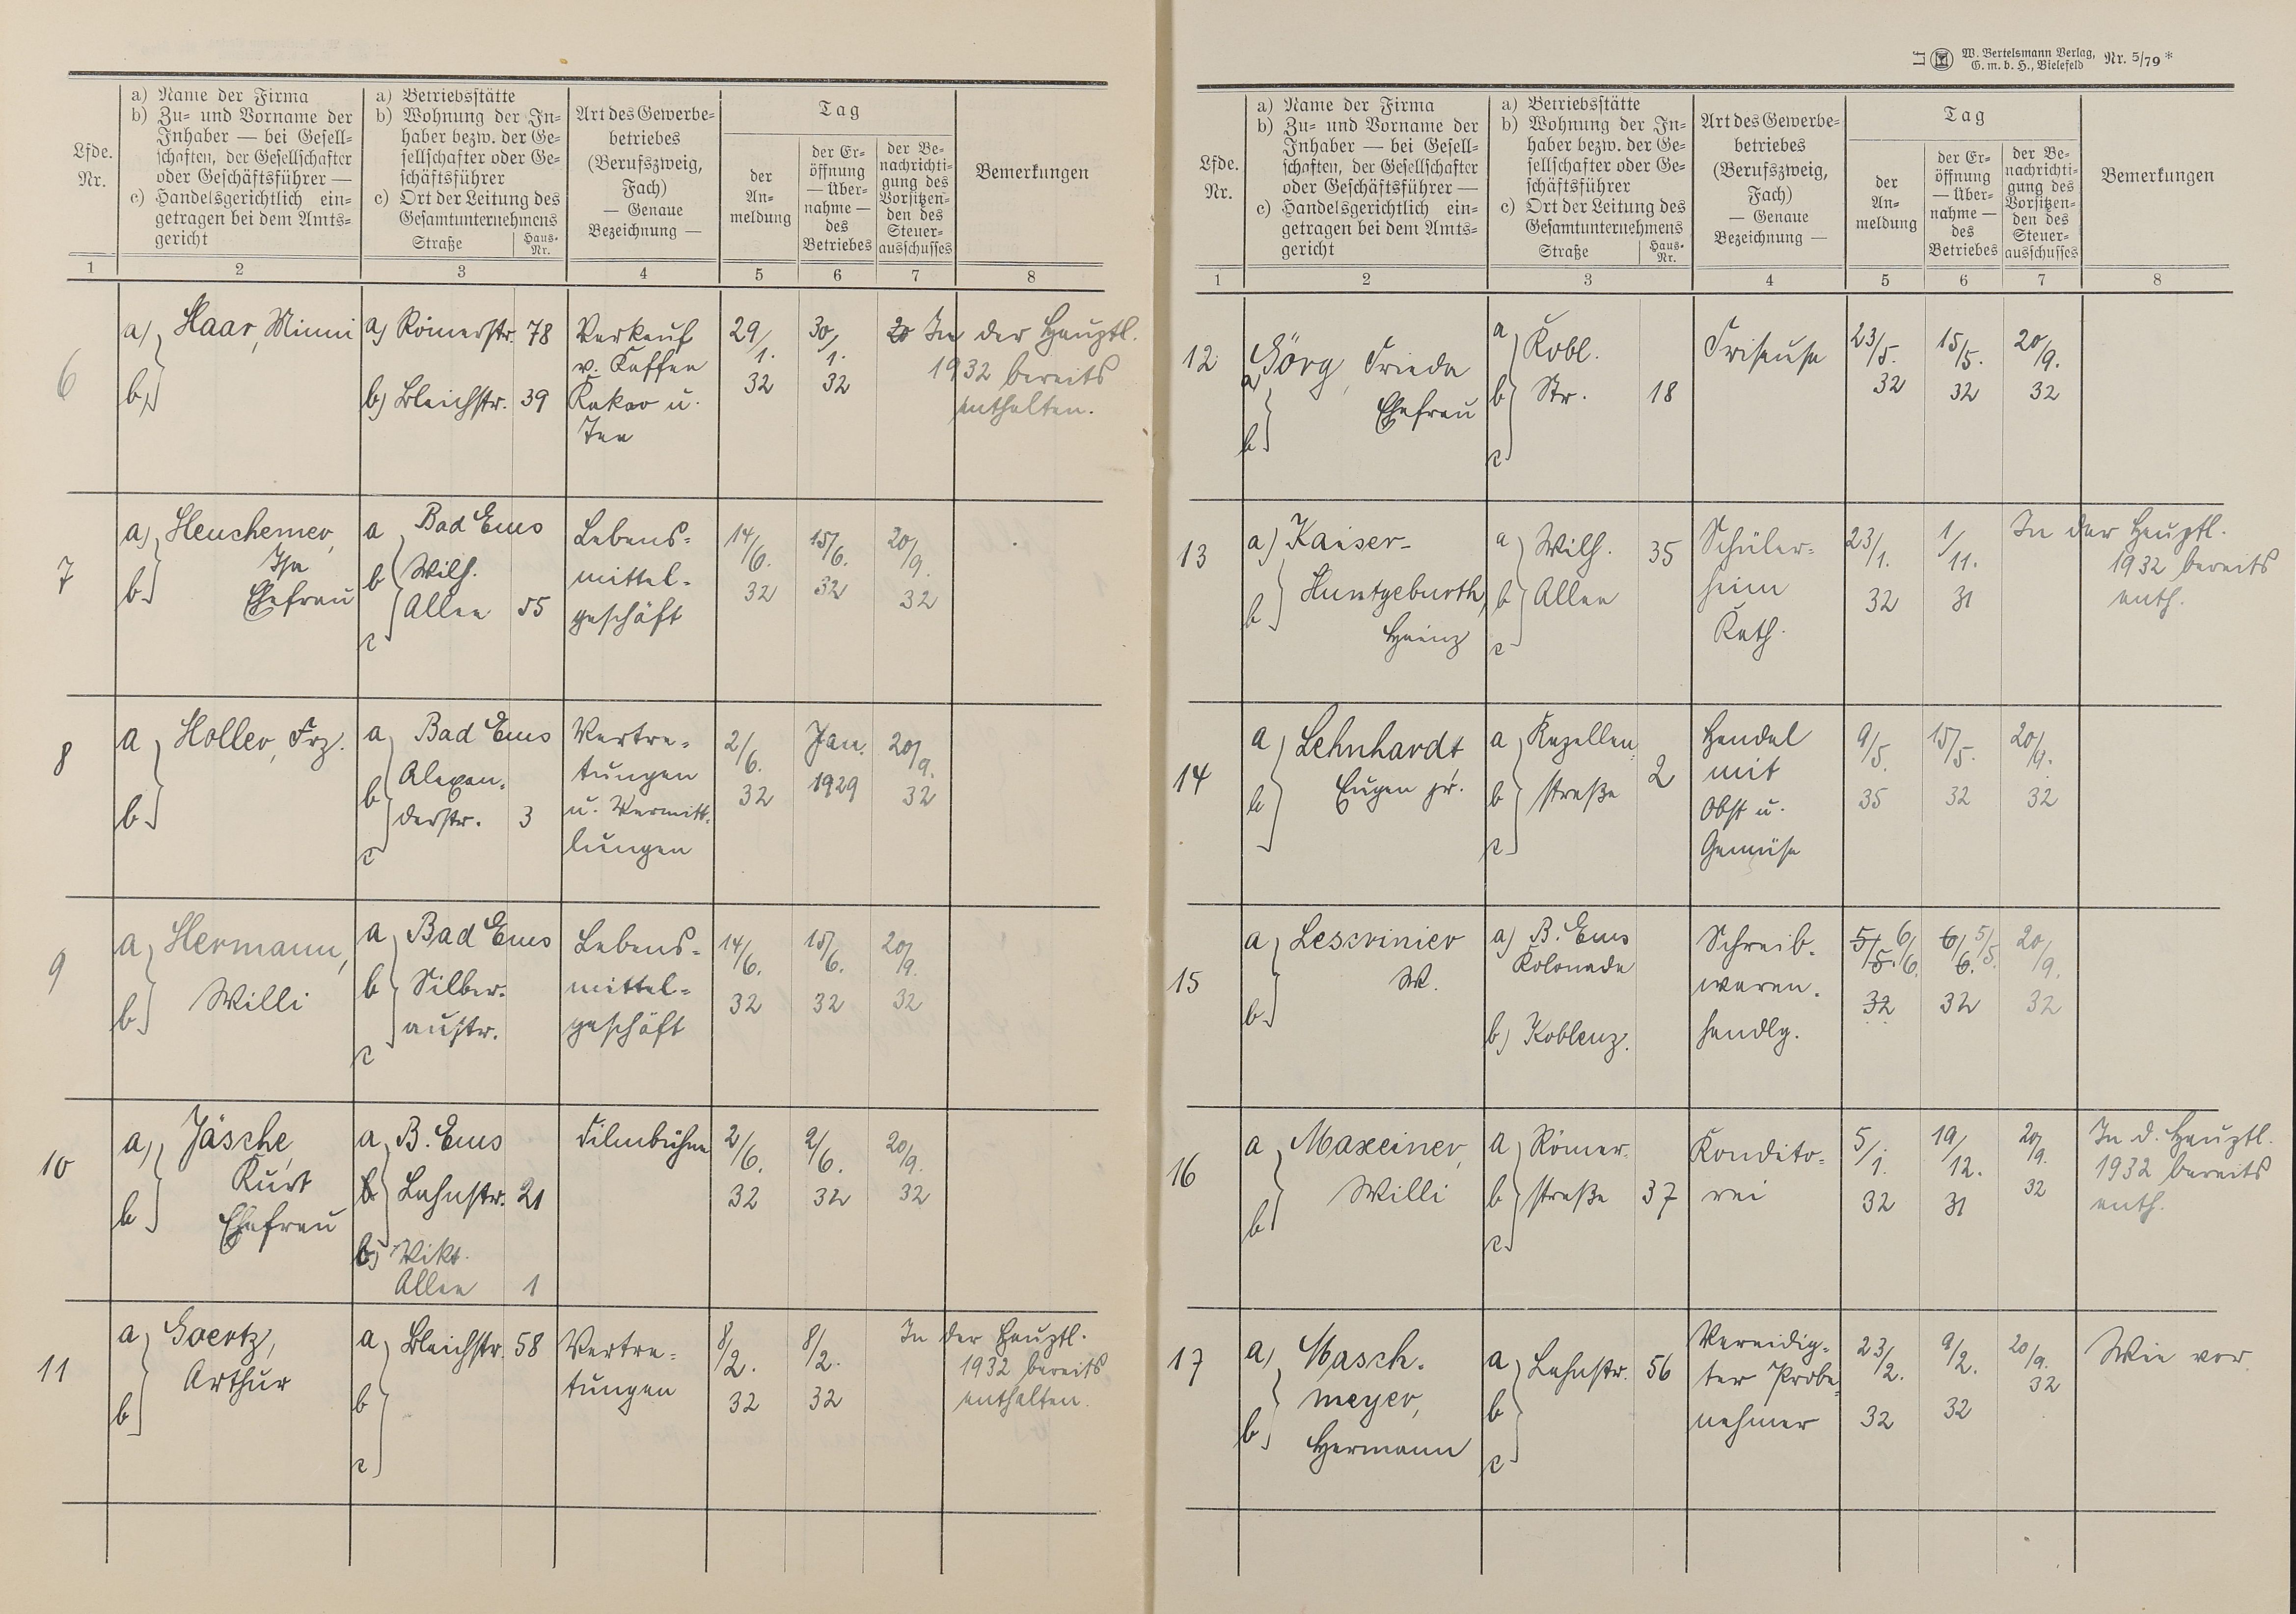 Lfde. Nr.
a) Name der Firma
b) Zu- und Vorname der
Inhaber — bei Gesell-
schaften, der Gesellschafter
oder Geschäftsführer —
c) Handelsgerichtlich ein-
getragen bei dem Amts-
gericht
a) Betriebsstätte
b) Wohnung der In-
haber bezw. der Ge-
sellschafter oder Ge-
schäftsführer
c) Ort der Leitung des
Gesamtunternehmens
Straße
Haus-Nr.
Art des Gewerbe-
betriebes
(Berufszweig,
Fach)
— Genaue
Bezeichnung —
Tag
der
An-
meldung
der Er-
öffnung
— Über-
nahme —
des
Betriebes
der Be-
nachrichti-
gung des
Vorsitzen-
den des
Steuer-
ausschusses
Bemerkungen
1 2 3 4 5 6 7 8
6
a) Haar, Minni
b)
a) Römerstr. 78
b) Bleichstr. 39
Verkauf
v. Kaffee
Kakao u.
Tee
29/1. 32
30/1. 32
20 In der Hauptl.
1932 bereits
enthalten.
7
a) Heuchemer,
Ehefrau
b
a Bad Ems
b Wilh.
Allee 55
c
Lebens-
mittel-
geschäft
14/6. 32
15/6. 32
20/9. 32
8
a Holler, Frz.
b
a Bad Ems
b Alexan-
derstr. 3
c
Vertre-
tungen
u. Vermitt-
lungen
2/6. 32
Jan. 1929
20/9. 32
9
a Hermann,
b Willi
a Bad Ems
b Silber-
austr.
c
Lebens-
mittel-
geschäft
14/6. 32
15/6. 32
20/9. 32
10
a) Jäsche,
Kurt
b Ehefrau
a B. Ems
b Lahnstr. 21
b) Vikt.
Allee 1
Filmbühne
2/6. 32
2/6. 32
20/9. 32
11
a Goertz,
Arthur
b
a Bleichstr. 58
b
c
Vertre-
tungen
8/2. 32
8/2. 32
In der Hauptl.
1932 bereits
enthalten.
W. Bertelsmann Verlag,
G. m. b. H., Bielefeld
Nr. 5/79 *
Lfde. Nr.
a) Name der Firma
b) Zu- und Vorname der
Inhaber — bei Gesell-
schaften, der Gesellschafter
oder Geschäftsführer —
c) Handelsgerichtlich ein-
getragen bei dem Amts-
gericht
a) Betriebsstätte
b) Wohnung der In-
haber bezw. der Ge-
sellschafter oder Ge-
schäftsführer
c) Ort der Leitung des
Gesamtunternehmens
Straße
Haus-Nr.
Art des Gewerbe-
betriebes
(Berufszweig,
Fach)
— Genaue
Bezeichnung —
Tag
der
An-
meldung
der Er-
öffnung
— Über-
nahme —
des
Betriebes
der Be-
nachrichti-
gung des
Vorsitzen-
den des
Steuer-
ausschusses
Bemerkungen
1 2 3 4 5 6 7 8
12
a Görg, Frieda
Ehefrau
b
a Kobl.
b Str. 18
c
Friseuse
23/5. 32
15/5. 32
20/9. 32
13
a) Kaiser-
b Huntgeburth,
Heinz
a Wilh. 35
b Allee
c
Schüler-
heim
Kath.
23/1. 32
1/11. 31
In der Hauptl.
1932 bereits
enth.
14
a Lehnhardt
b Eugen jr.
a Kapellen-
b straße 2
c
Handel
mit
Obst u.
Gemüse
9/5. 35
15/5. 32
20/9. 32
15
a Lescrinier
W.
b
a) B. Ems
Kolonade
b) Koblenz.
Schreib-
waren-
handlg.
5/5. 6/6. 32
6/6. 5/5. 32
20/9. 32
16
a Maxeiner,
b Willi
a Römer-
b straße 37
c
Kondito-
rei
5/1. 32
19/12. 31
20/9. 32
In d. Hauptl.
1932 bereits
enth.
17
a Masch-
meyer,
b Hermann
a Lahnstr. 56
b
c
Vereidig-
ter Probe-
nehmer
23/2. 32
9/2. 32
20/9. 32
Wie vor